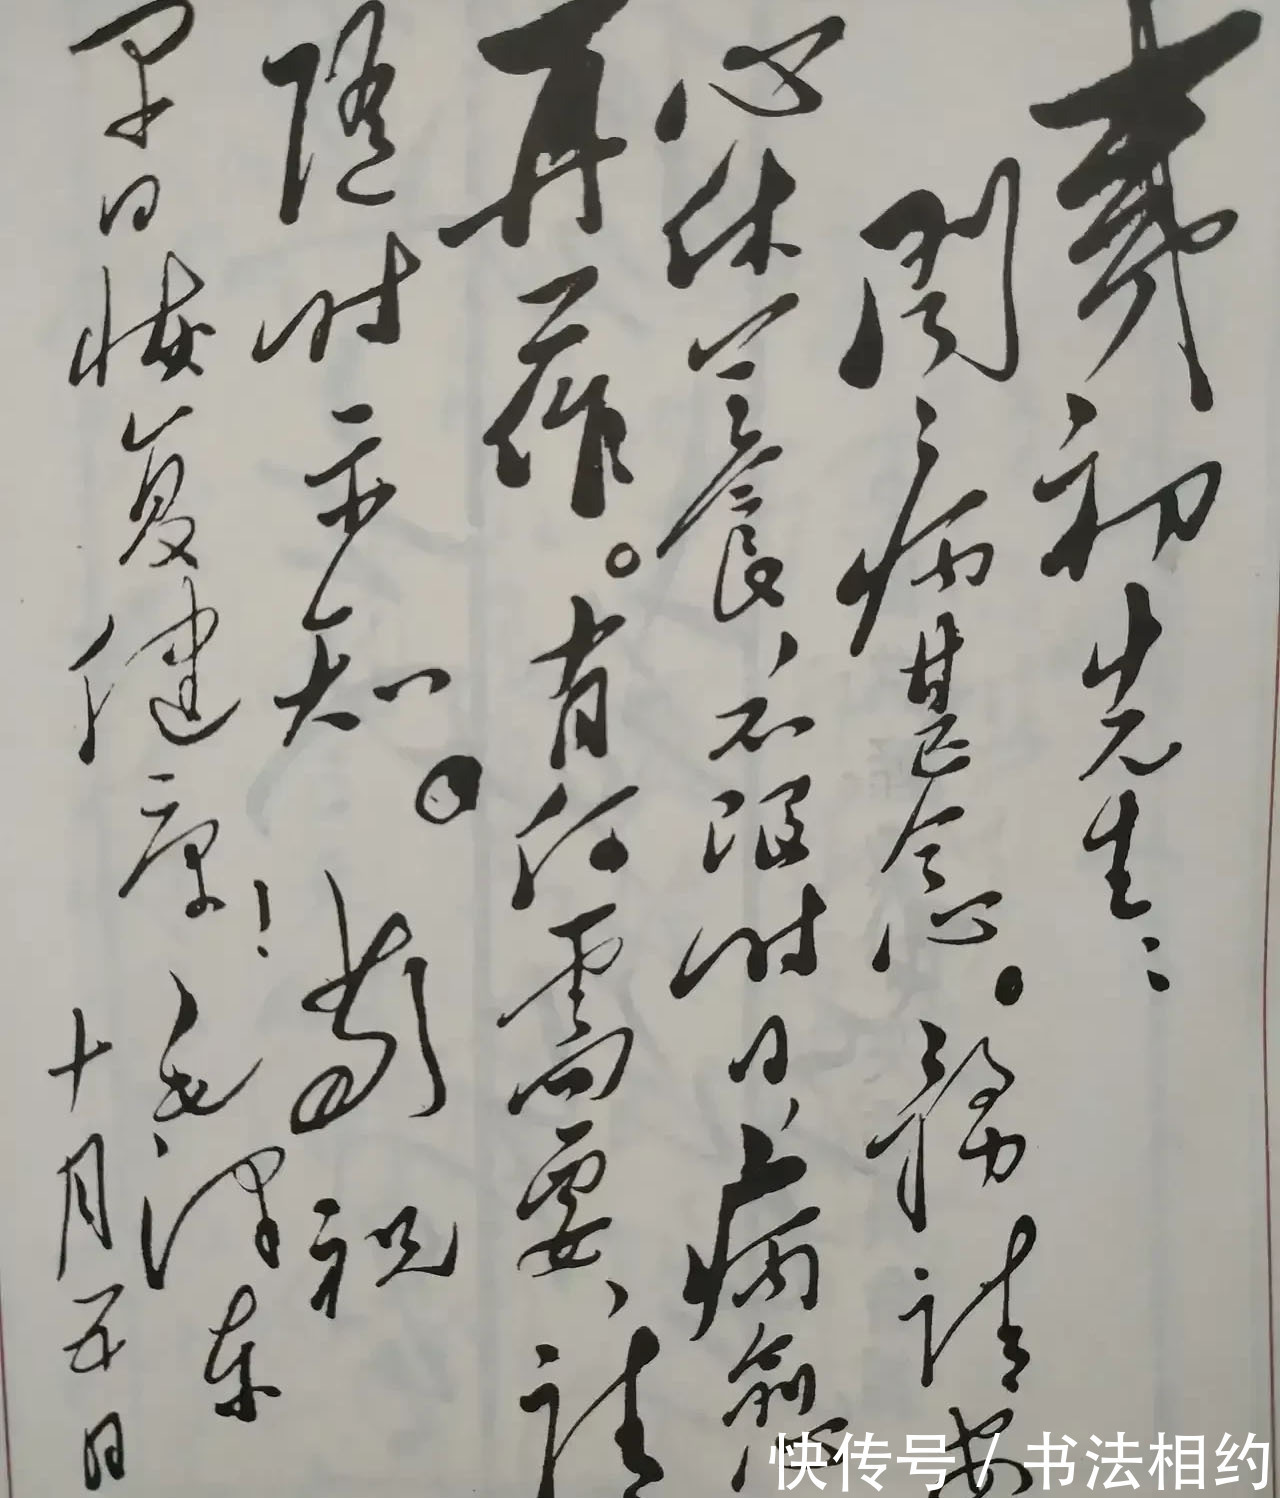 彝初先生：
闻病甚念。务请安
心休养，不限时日，病愈
再作。有何需要，请
随时示知。敬祝
早日恢复健康！
毛泽东
十月五日
快传号／书法相约